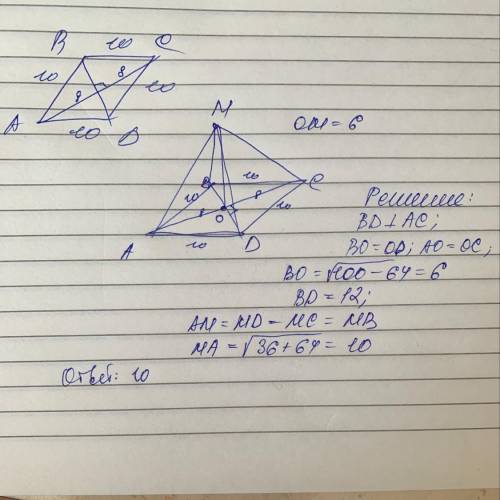 B 10 C
10 8 8 10
A 10 B
M
OM = 6
B 10 C
10 8 10
8 O
A 10 D
Решение:
BD⊥AC;
BO=OD; AO=OC;
BO = √100-64 = 6
BD = 12;
AM = MD - MC = MB
MA = √36+64 = 10
Ответ: 10